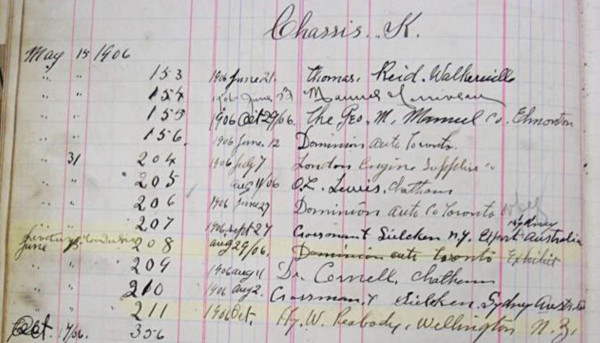 Chassis. K.
May 15 1906
" " 153 1906 June 21. Thomas, Reid. Walkerville
" " 154 June Manuel
" " 155 1906 Oct 29/06. The Geo. M. Manuel Co. Edmonton
" " 156. 1906 June 12 Dominion Auto Toronto.
" 31 204 1906 July 7 London Engine Supplies Co
" " 205 Aug 14/06 O.L. Lewis, Chatham
" " 206 1906 June 27 Dominion Auto Co Toronto
" " 207 1906 Sept 27 Crossman & Sielcken N.Y. Export Sydney Australia
June 208 Aug 29/06. Dominion Auto Toronto Exhibit
" " 209 1906 Aug 11 Dr. Cornell, Chatham
" " 210 1906 Aug 2. Crossman & Sielcken. Sydney Australia
" " 211 1906 Oct. Hy. W. Peabody, Wellington N.Z.
Oct 17/06. 356